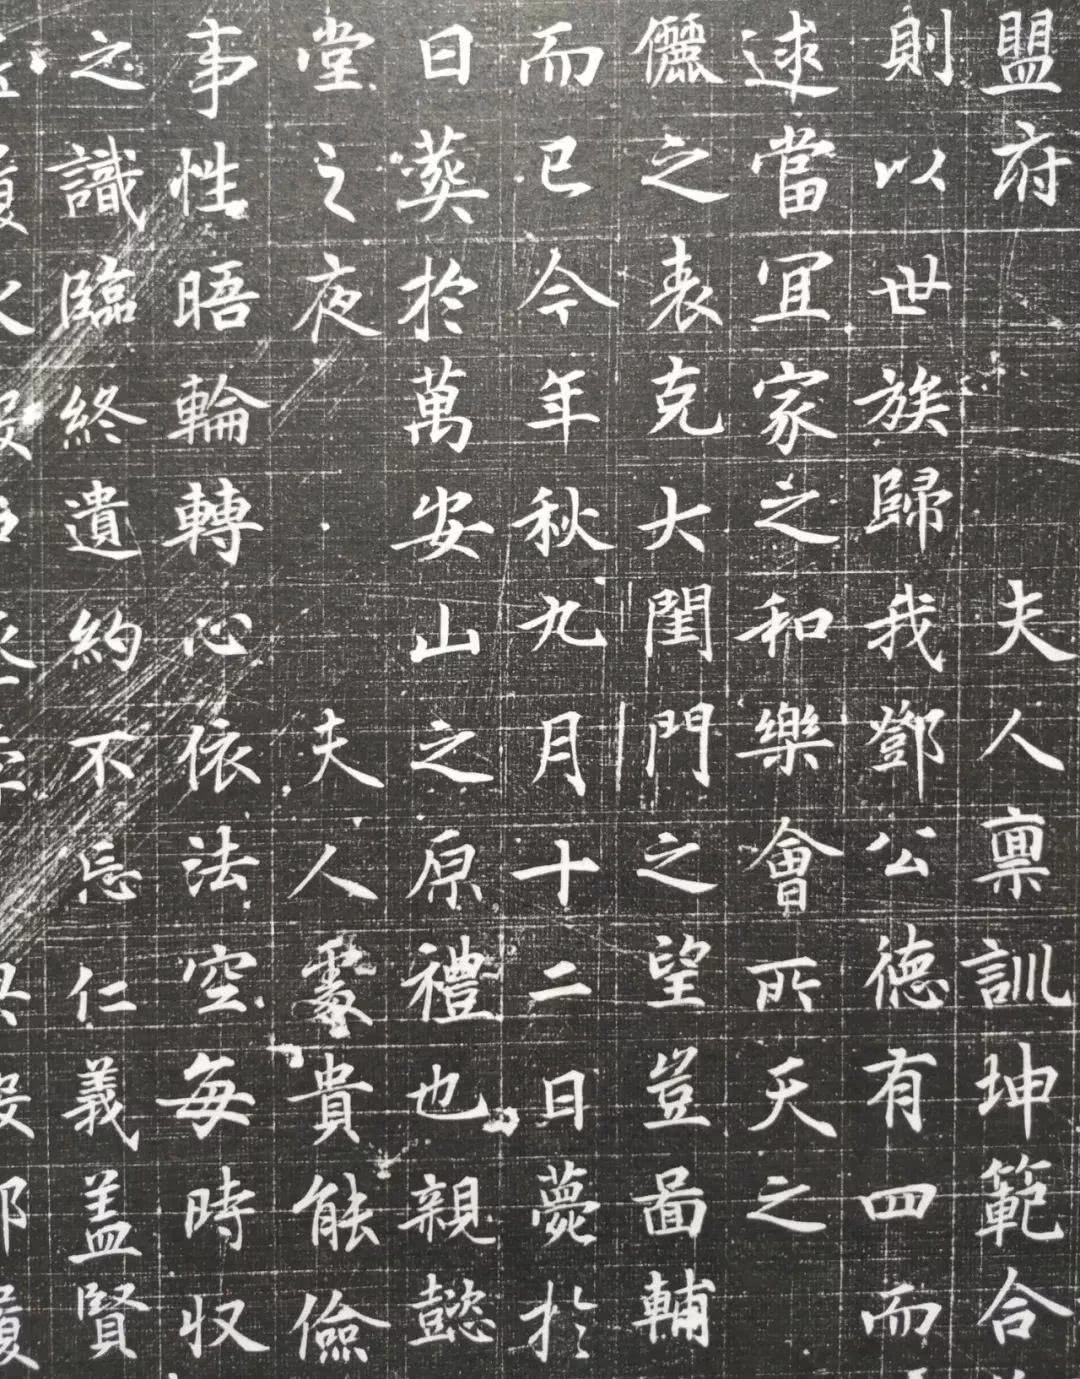 盟府夫人禀訓坤範合
則以世族歸我鄧公德有四而
逑當宜家之和樂會所天之
儷之表克大閨門之望豈啚輔
而已今年秋九月十二日薨於
日葬於萬安山之原禮也親懿
堂之夜夫人處貴能儉
事性晤輪轉心依法空每時收
之識臨終遺約不忘仁義盖賢